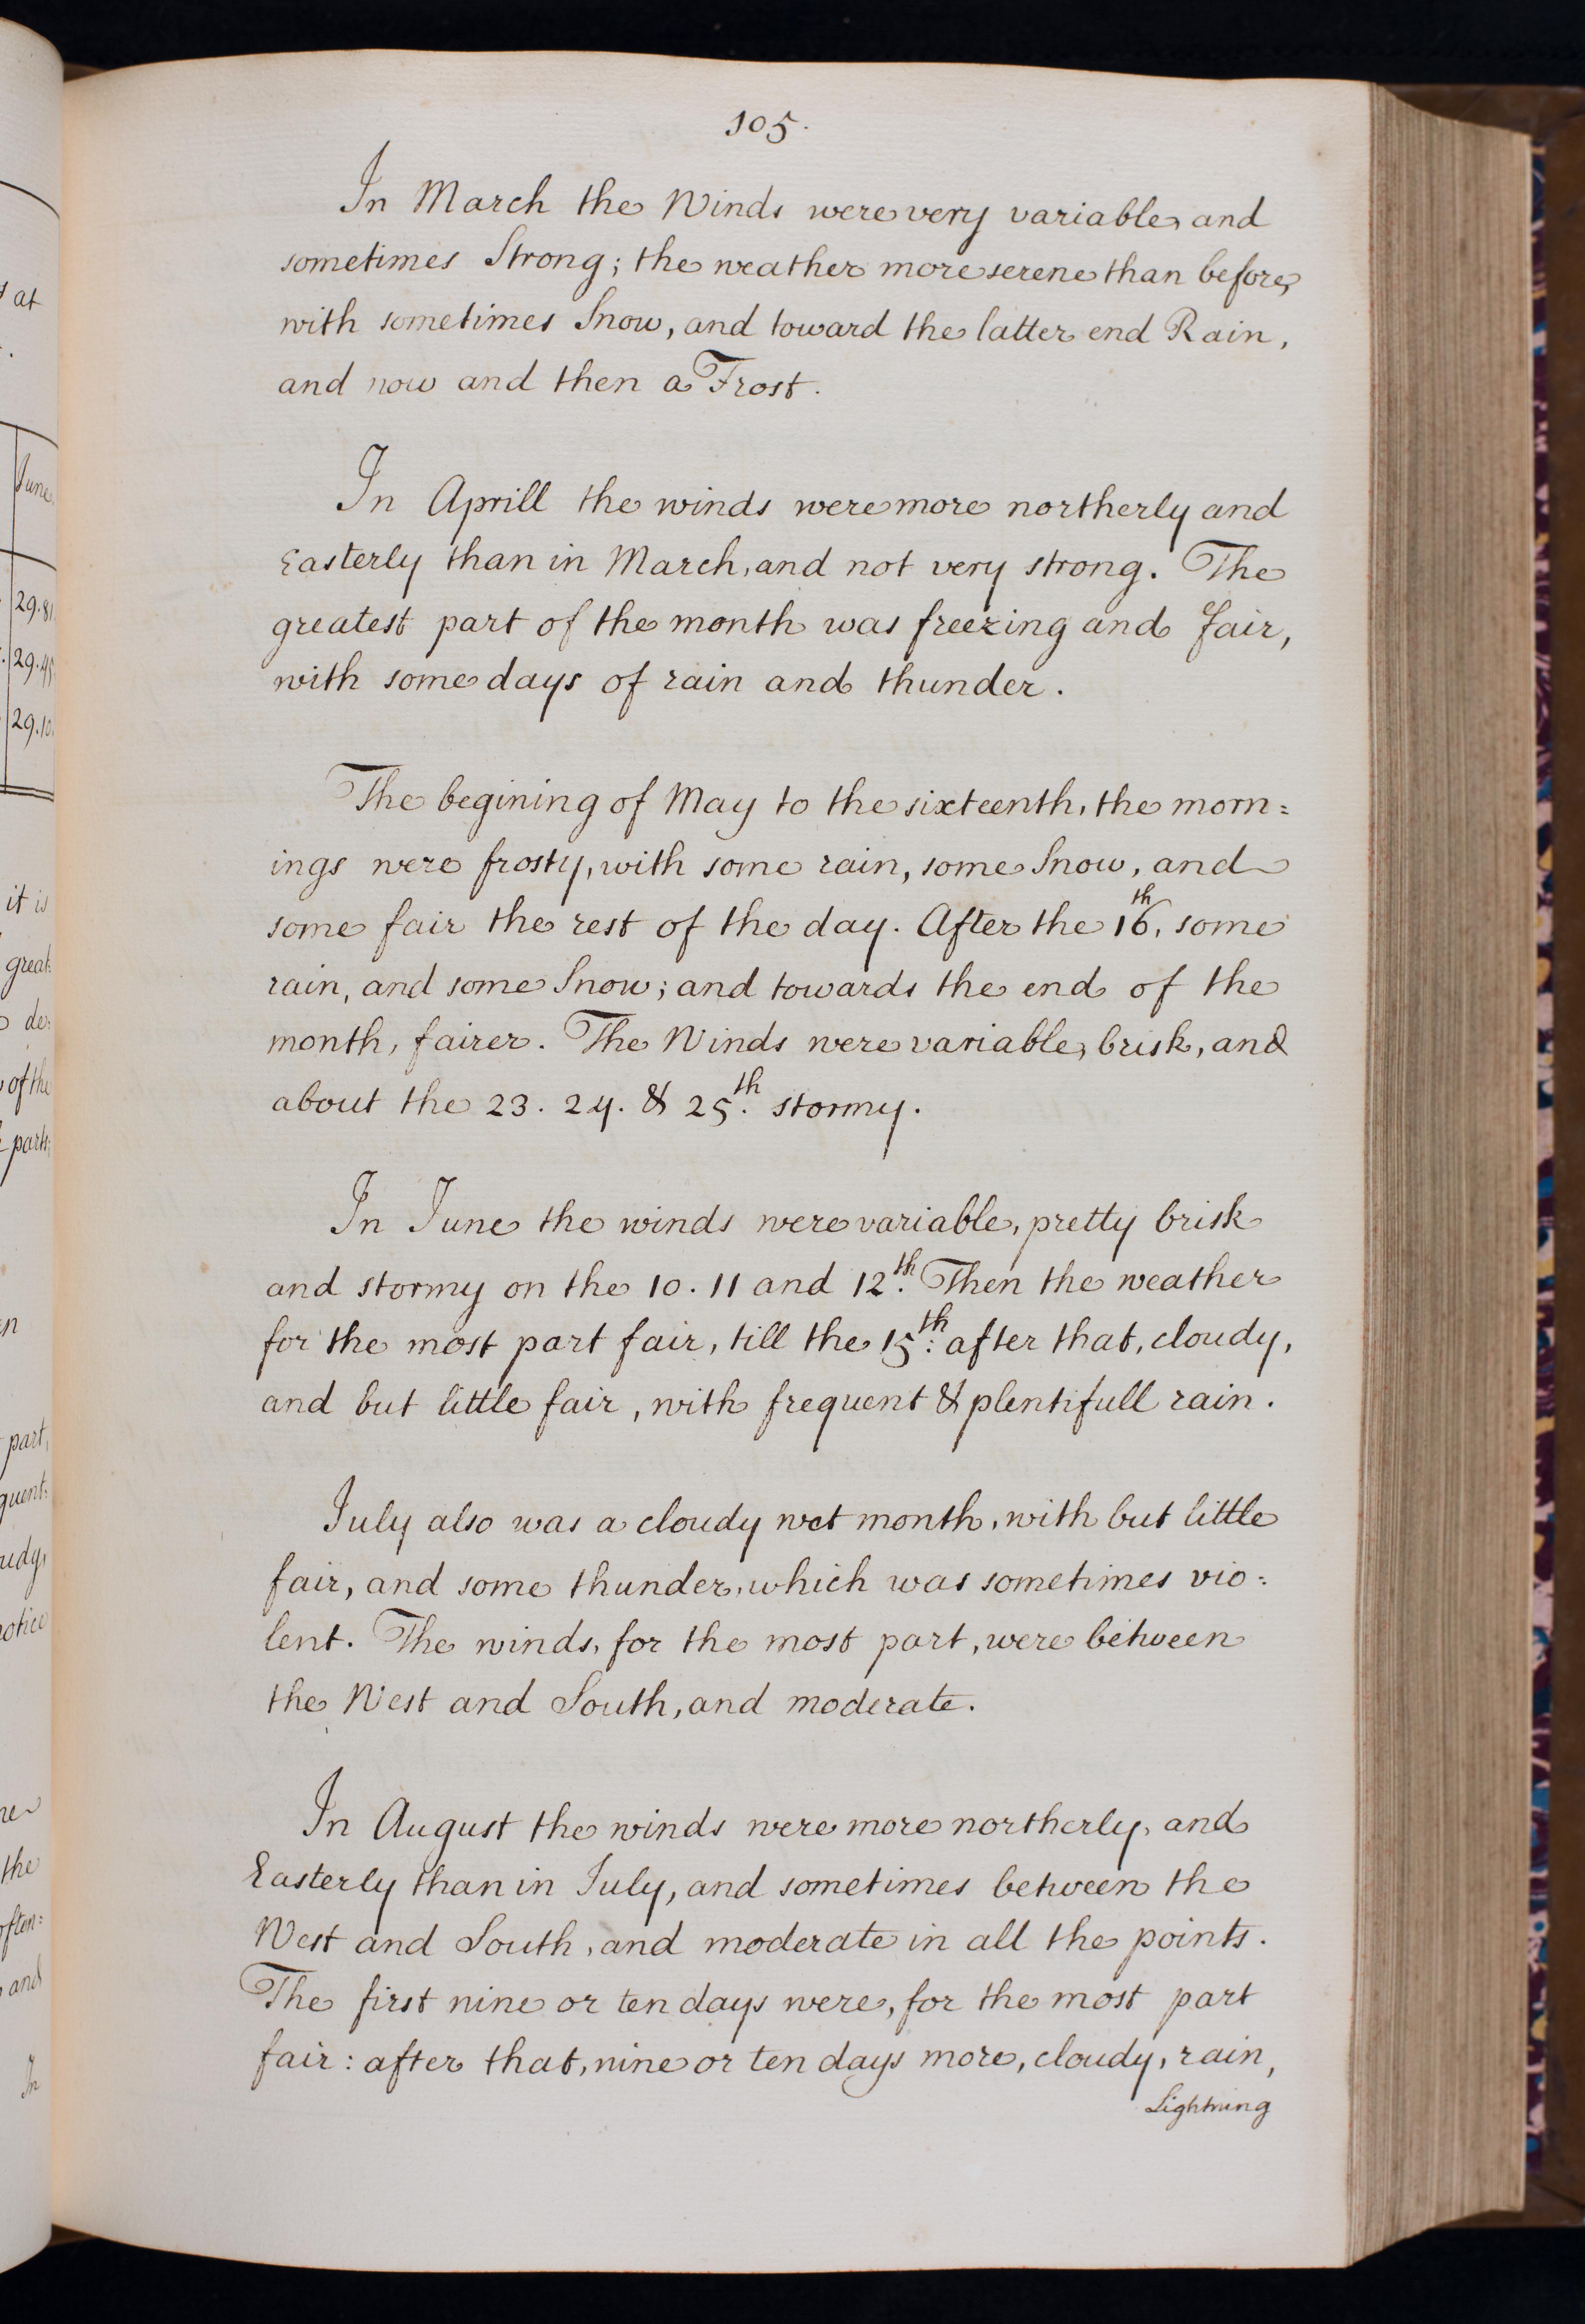 105.
In March the Winds were very variable, and
sometimes Strong; the weather more serene than before,
with sometimes Snow, and toward the latter end Rain,
and now and then a Frost.
In Aprill the winds were more northerly and
Easterly than in March, and not very strong. The
greatest part of the month was freezing and fair,
with some days of rain and thunder.
The begining of May to the sixteenth, the morn=
ings were frosty, with some rain, some Snow, and
some fair the rest of the day. After the 16th, some
rain, and some Snow; and towards the end of the
month, fairer. The Winds were variable, brisk, and
about the 23. 24. & 25th. stormy.
In June the winds were variable, pretty brisk
and stormy on the 10. 11 and 12th. Then the weather
for the most part fair, till the 15th: after that, cloudy,
and but little fair, with frequent & plentifull rain.
July also was a cloudy wet month, with but little
fair, and some thunder, which was sometimes vio=
lent. The winds, for the most part, were between
the West and South, and moderate.
In August the winds were more northerly, and
Easterly than in July, and sometimes between the
West and South, and moderate in all the points.
The first nine or ten days were, for the most part
fair: after that, nine or ten days more, cloudy, rain,
Lightning
at
June
29.81
29.45
29.10
it is
great=
de=
of the
parts;
part,
quent=
udy,
notice
the
often=
and
In